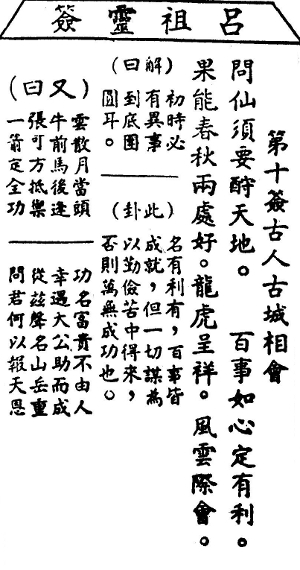 呂祖靈簽
第十簽古人古城相會
問仙須要酧天地。 百事如心定有利。
果能春秋兩處好。龍虎呈祥。風雲際會。
(解曰)
初時必
有異事
到底團
圓斗。
(此卦)
名有利有,百事皆
成就,但一切謀為
以勤儉苦中得來,
否則萬無成功也。
(又曰)
雲散月當頭
牛前馬後逢
張可方抵樂
一箭定全功
功名富貴不由人
幸遇大公助而成
從茲聲名山岳重
問君何以報天恩